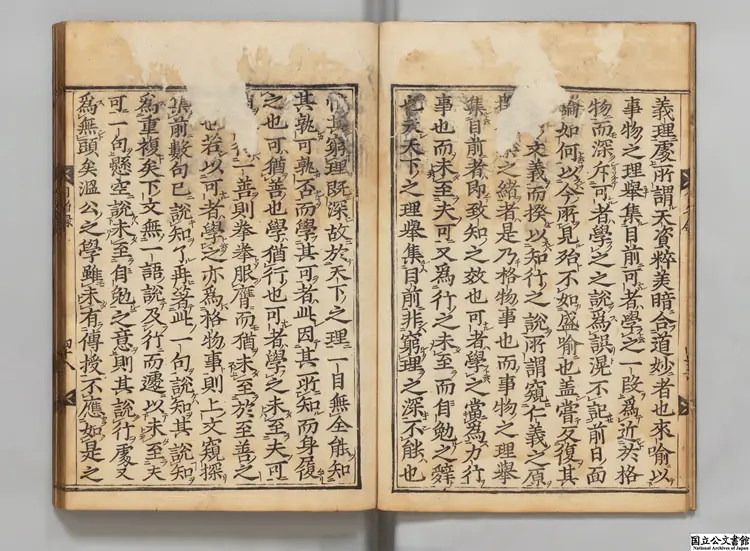 義理處所謂天資粹美暗合道妙者也來喩以
事物之理擧集目前可者學之一段爲近於格
物而深斥可者學之之說爲誤滉不記前日面
論如何以今所見殆不如盛喩也盖嘗反復其
文義而揆以知行之說所謂窺仁義之原
之緒者是乃格物事也而事物之理擧
集目前者即致知之效也可者學之當爲力行
事也而未至夫可又爲行之未至而自勉之辭
也夫天下之理擧集目前非窮理之深不能也
其窮理既深故於天下之理一目無全能知
其孰可孰否而學其可者此因其所知而身履
之也可猶善也學猶行也可者學之未至夫可
一善則拳拳服膺而猶未至於至善之
也若以可者學之亦爲格物事則上文窺探
集前數句已說知了再著此一句說知其說知
爲重複矣下文無一語說及行而遽以未至夫
可一句懸空說未至自勉之意則其說行處又
爲無頭矣溫公之學雖未有傳授不應如是之
国立公文書館
National Archives of Japan